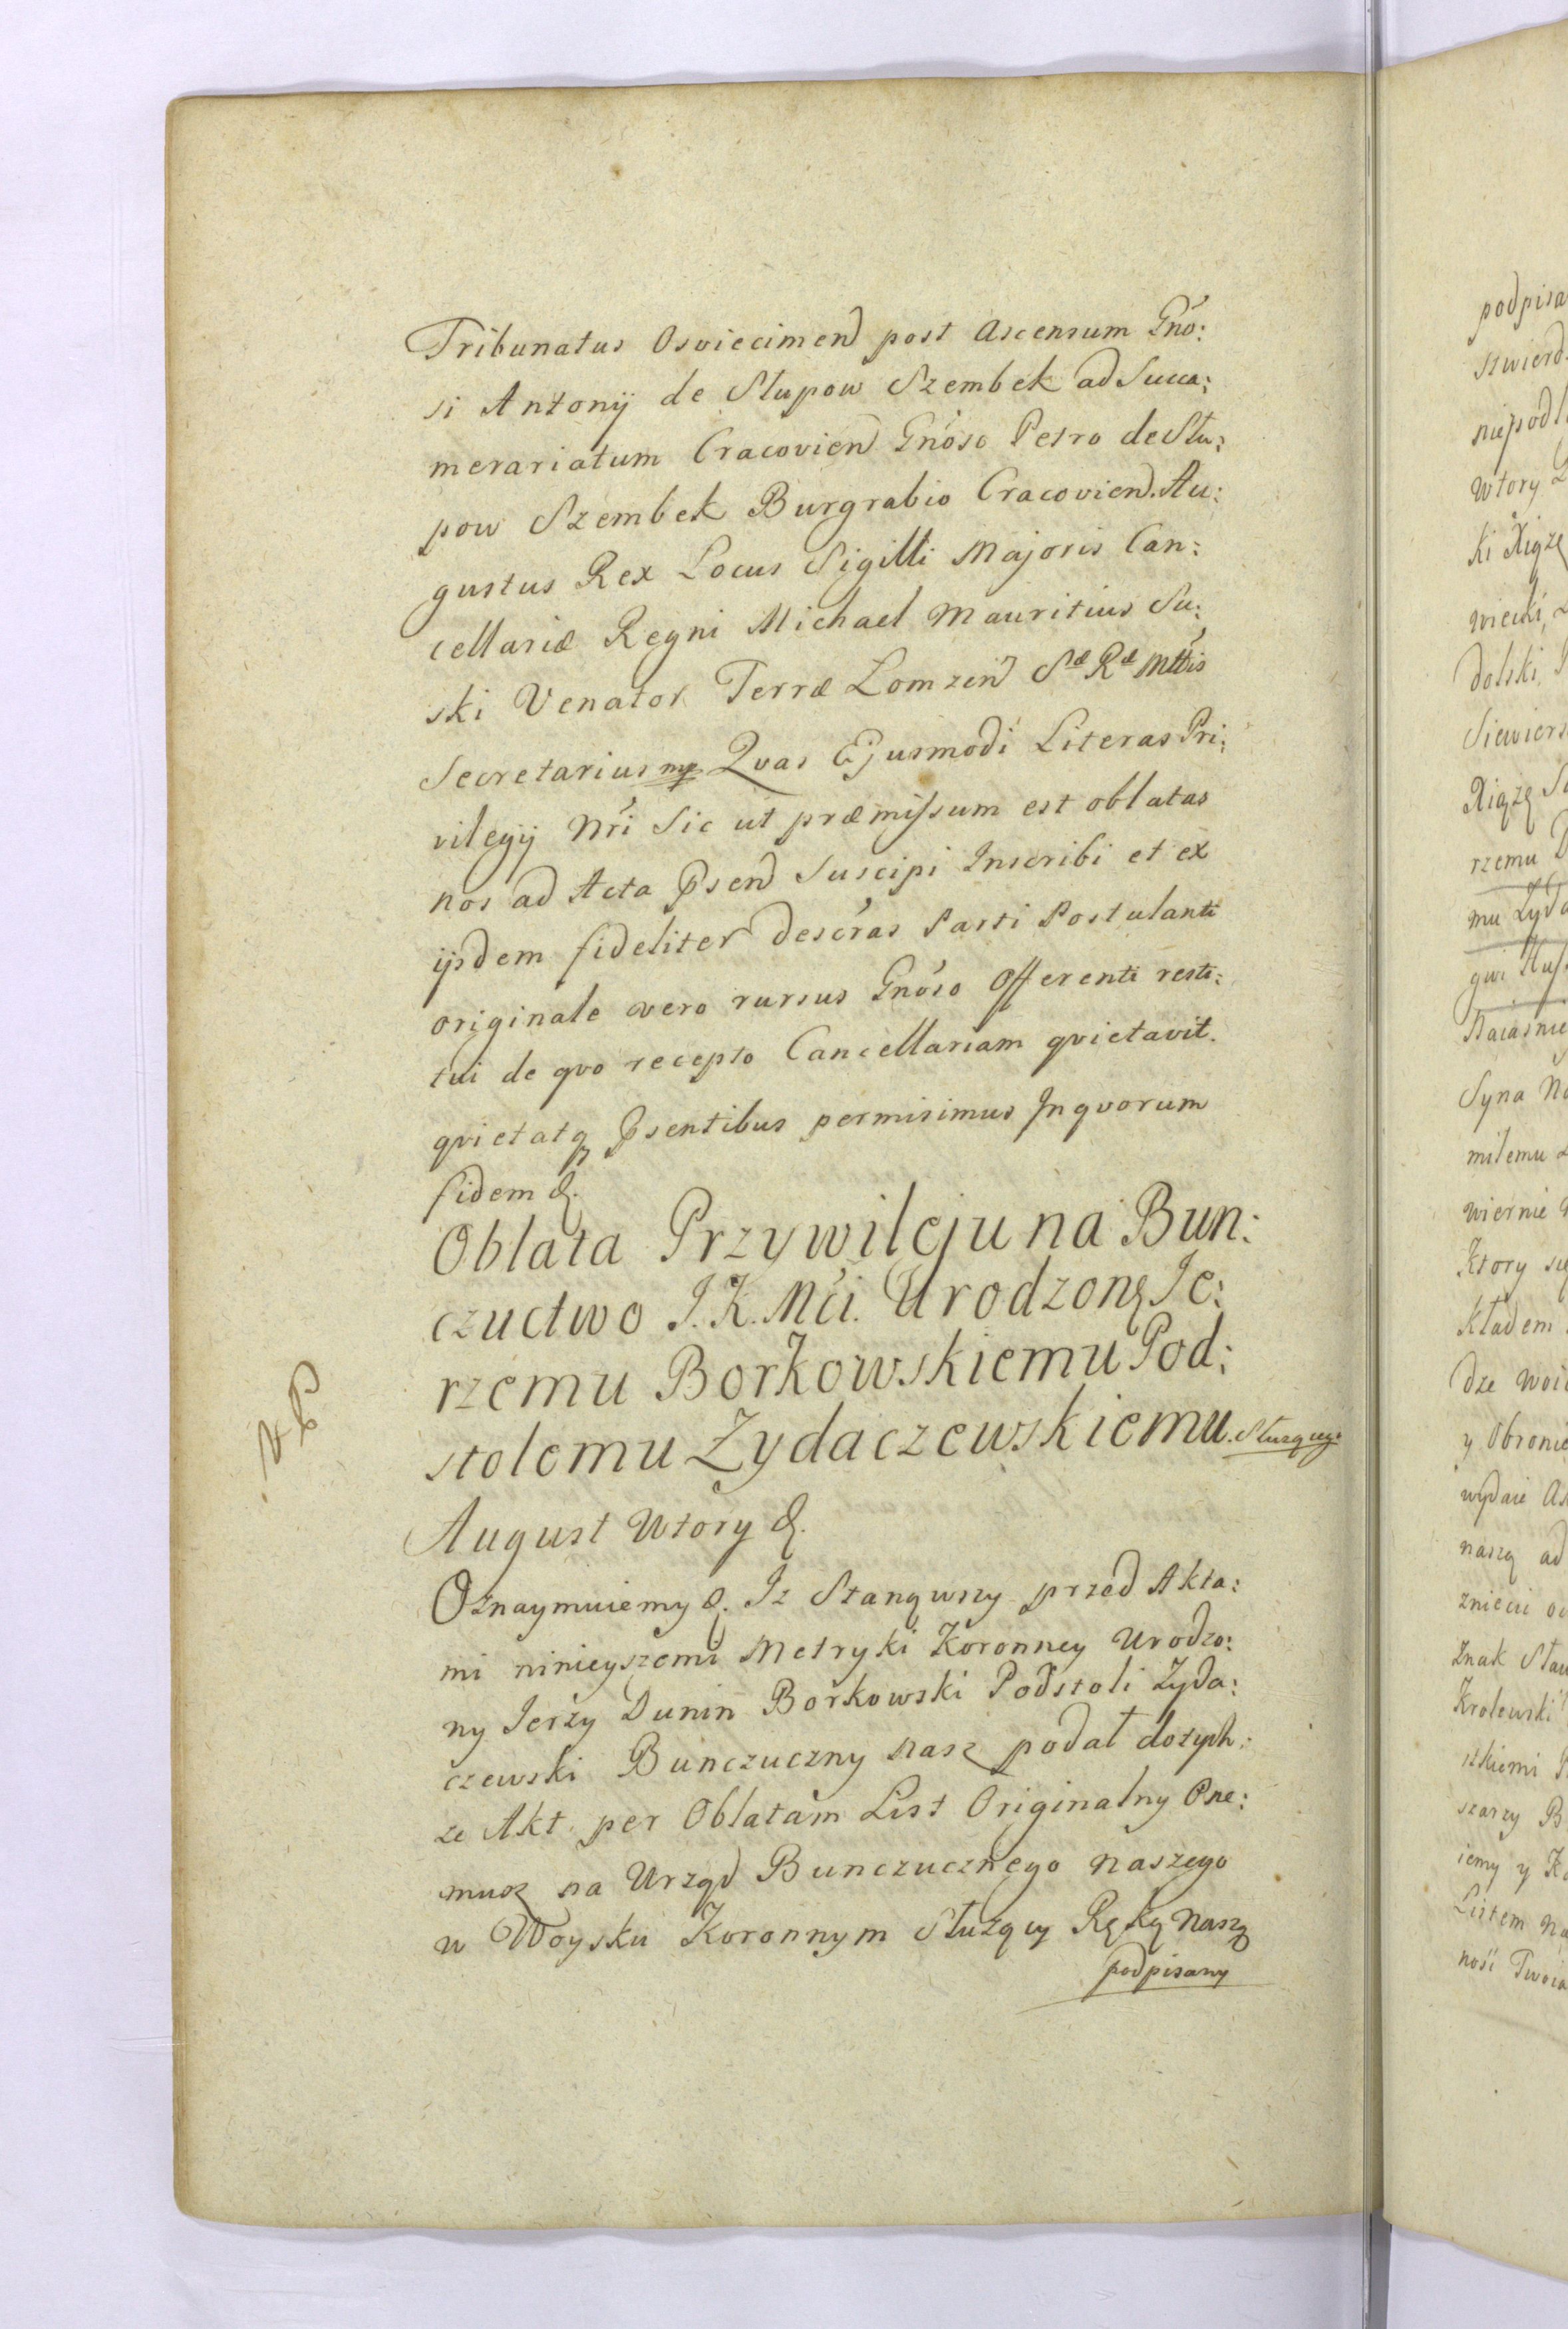 Tribunatus Osviecimen post Ascensum Gño:
si Antonij de Słupow Szembek ad Succa:
merariatum Cracovien Gñoso Petro de Słu:
pow Szembek Burgrabio Cracovien. Au:
gustus Rex Locus Sigilli Majoris Can:
cellariæ Regni Michael Mauritius Su:
ski Venator Terræ Lomzen Sæ Ræ Mttis
Secretarius mp Qvas Ejusmodi Literas Pri:
vilegij Nri Sic ut præmissum est oblatas
nos ad Acta Psen Suscipi Inscribi et ex
ijsdem fideliter Descras Parti Postulanti
originale vero rursus Gñoso Offerenti resti:
tui de qvo recepto Cancellariam qvietavit.
qvietatq Psentibus permisimus Inqvorum
fidem &.
Oblata Przywileju na Bun:
czuctwo J.K.Mci. Urodzonę Je:
rzemu Borkowskiemu Pod:
stolemu Zydaczewskiemu. Służącey:
August Wtory &.
Oznaymuiemy &. Iz Stanąwszy przed Akta:
mi ninieyszemi Metryki Koronney Urodzo:
ny Jerzy Dunin Borkowski Podstoli Zyda:
czewski Bunczuczny nasz podał dotych:
ze Akt per Oblatam List Originalny One:
muż na Urząd Bunczucznego naszego
w Woysku Koronnym Służący Ręką naszą
podpisany
podpisa
stwierd
niepodl
Wtory
ki Xiąże
wiecki,
dolski,
Siewiers
Xiążę
rzemu
mu Zyda
Naiasnie
Syna Na
miłemu
wiernie
Ktory się
kładem
dze Woi
y Obronie
wydaie
naszą ad
znieci
Znak Sław
Krolewski
stkiemi
szarzy B
iemy y Ko
Listem na
ność Twoia